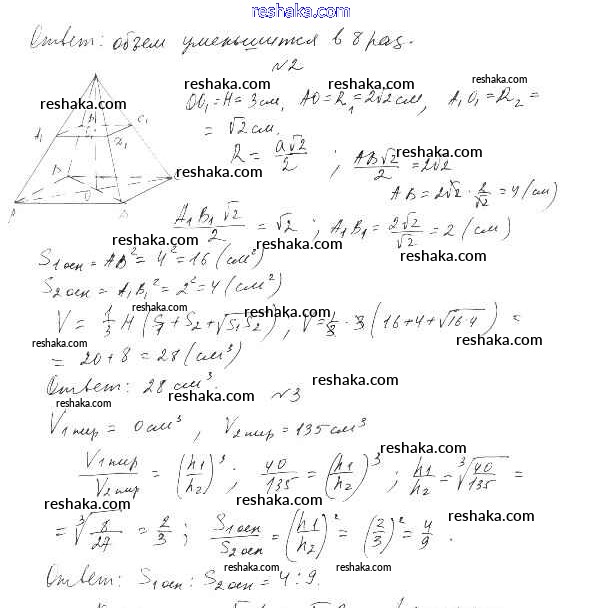 reshaka.com
Ответ: объем уменьшится в 8 раз.
№2
reshaka.com reshaka.com reshaka.com reshaka.com
OO₁ = H = 3 см, AO = R₁ = 2√2 см, A₁O₁ = R₂ =
= √2 см.
reshaka.com
R = a√2/2 ; AB√2/2 = 2√2
reshaka.com
reshaka.com
AB = 2√2 · 2/√2 = 4 (см)
A₁B₁√2/2 = √2 ; A₁B₁ = 2√2/√2 = 2 (см)
reshaka.com reshaka.com
S₁осн = AB² = 4² = 16 (см²)
S₂осн = A₁B₁² = 2² = 4 (см²)
reshaka.com reshaka.com
V = 1/3 H (S₁ + S₂ + √S₁S₂), V = 1/3 · 3 (16 + 4 + √16·4) =
reshaka.com reshaka.com
= 20 + 8 = 28 (см³)
Ответ: 28 см³.
reshaka.com reshaka.com
№3
reshaka.com
V₁пир = 0 см³, V₂пир = 135 см³
reshaka.com
V₁пир/V₂пир = (h₁/h₂)³ ; 40/135 = (h₁/h₂)³ ; h₁/h₂ = ³√40/135 =
reshaka.com reshaka.com
= ³√8/27 = 2/3 ; S₁осн/S₂осн = (h₁/h₂)² = (2/3)² = 4/9.
reshaka.com reshaka.com
Ответ: S₁осн : S₂осн = 4 : 9.
reshaka.com reshaka.com